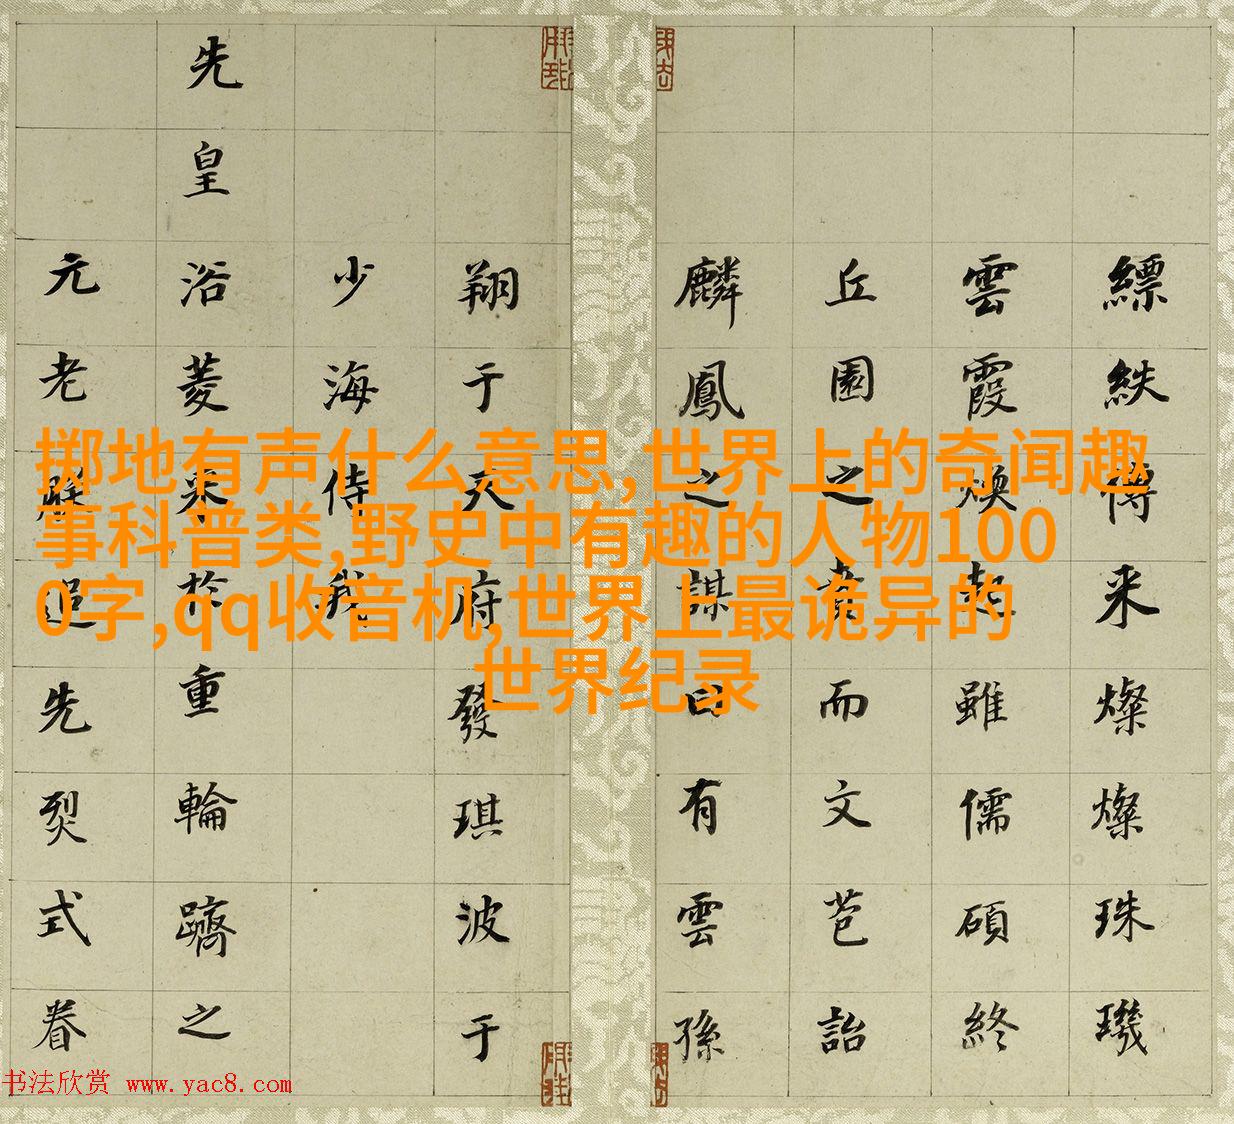 掷地有声什么意思,世界上的奇闻趣
事科普类,野史中有趣的人物100
0字,qq收音机,世界上最诡异的
世界纪录
縹紩采燦燦珠璣
雲霞煥起雖儒碩終
丘園之賁而文芑詒
麟鳳之謀曰有雲孫
翔于天府發琪波于
少海侍我
先皇浴菱采於重輪躋之
元老朕追先烈式眷
书法欣赏 www.yac8.com